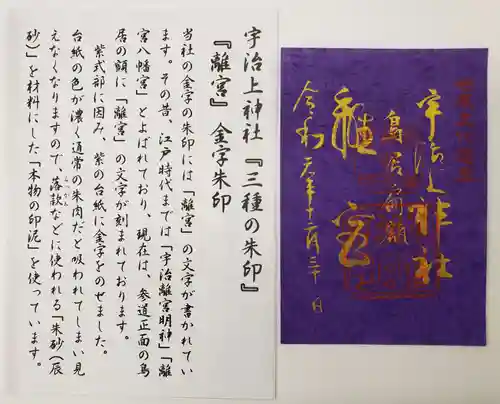 宇治上神社
鳥居
離宮
令和元年
宇治上神社『三種の朱印』
『離宮』金字朱印
当社の金字の朱印には「離宮」の文字が書かれてい
ます。その昔、江戸時代までは「宇治離宮明神」「離
宮八幡宮」とよばれており、現在は、参道正面の鳥
居の額に「離宮」の文字が刻まれております。
紫式部に因み、紫の台紙に金字をのせました。
台紙の色が濃く通常の朱肉だと吸われてしまい見
えなくなりますので、落款などに使われる「朱砂(辰
砂)」を材料にした「本物の印泥」を使っています。